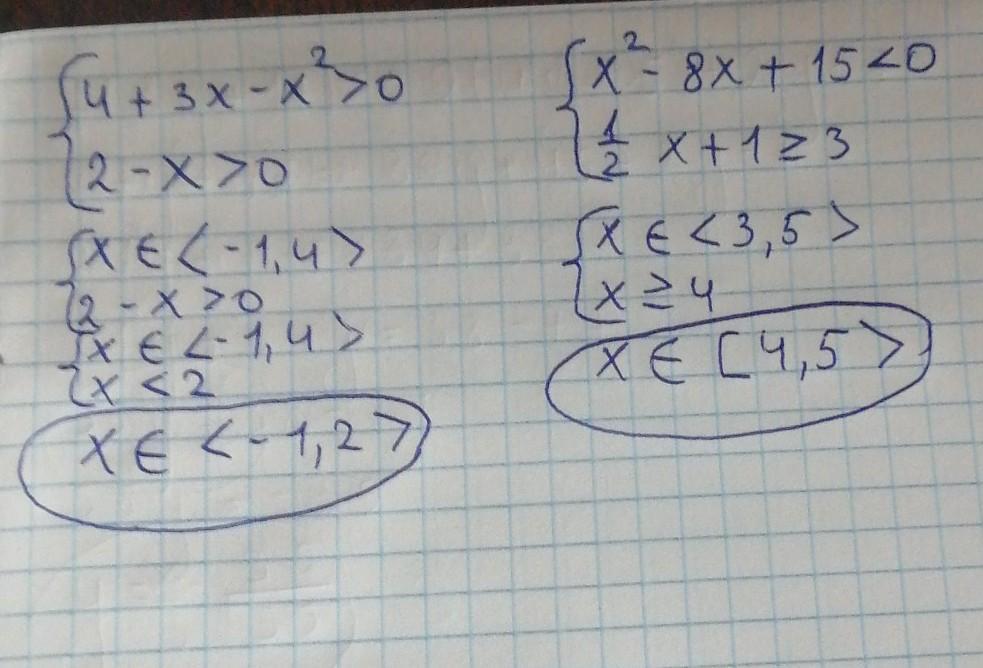 4 + 3x - x² > 0
2 - x > 0
x ∈ < -1, 4 >
2 - x > 0
x ∈ < -1, 4 >
x < 2
x ∈ < -1, 2 >
x² - 8x + 15 < 0
1/2 x + 1 ≥ 3
x ∈ < 3, 5 >
x ≥ 4
x ∈ [ 4, 5 >